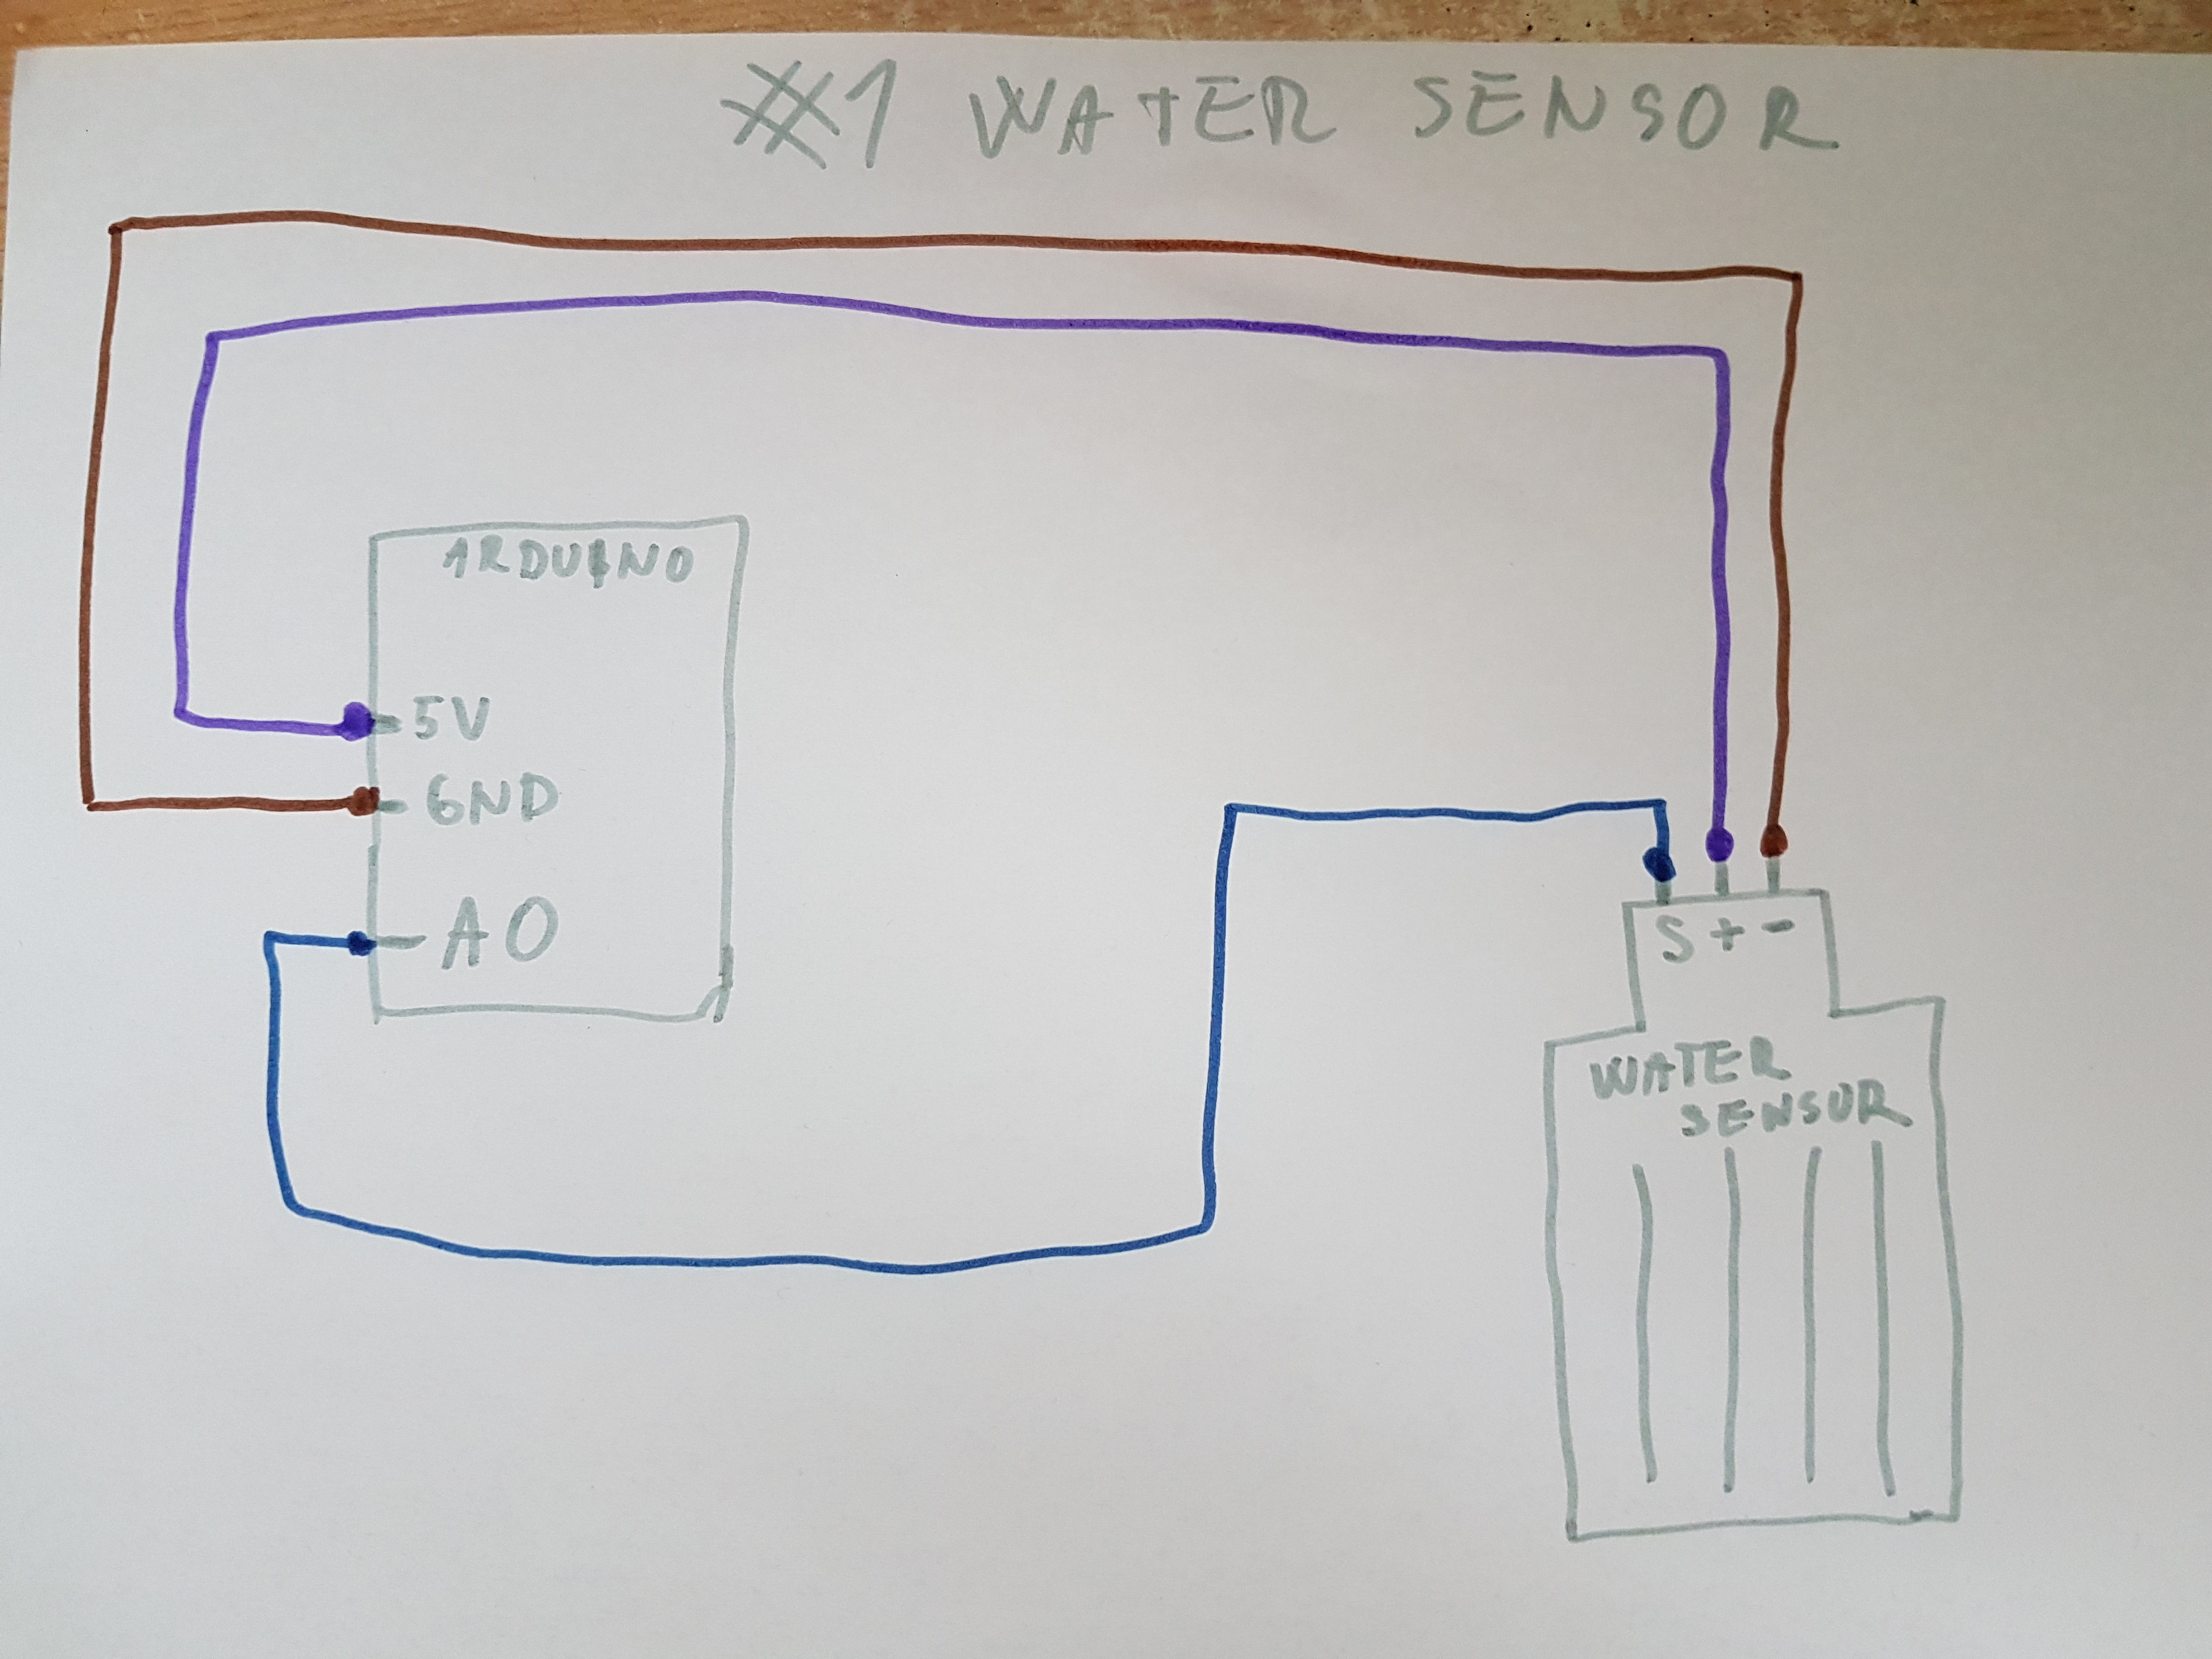 #1 WATER SENSOR
ARDUINO
5V
GND
A0
S + -
WATER
SENSOR